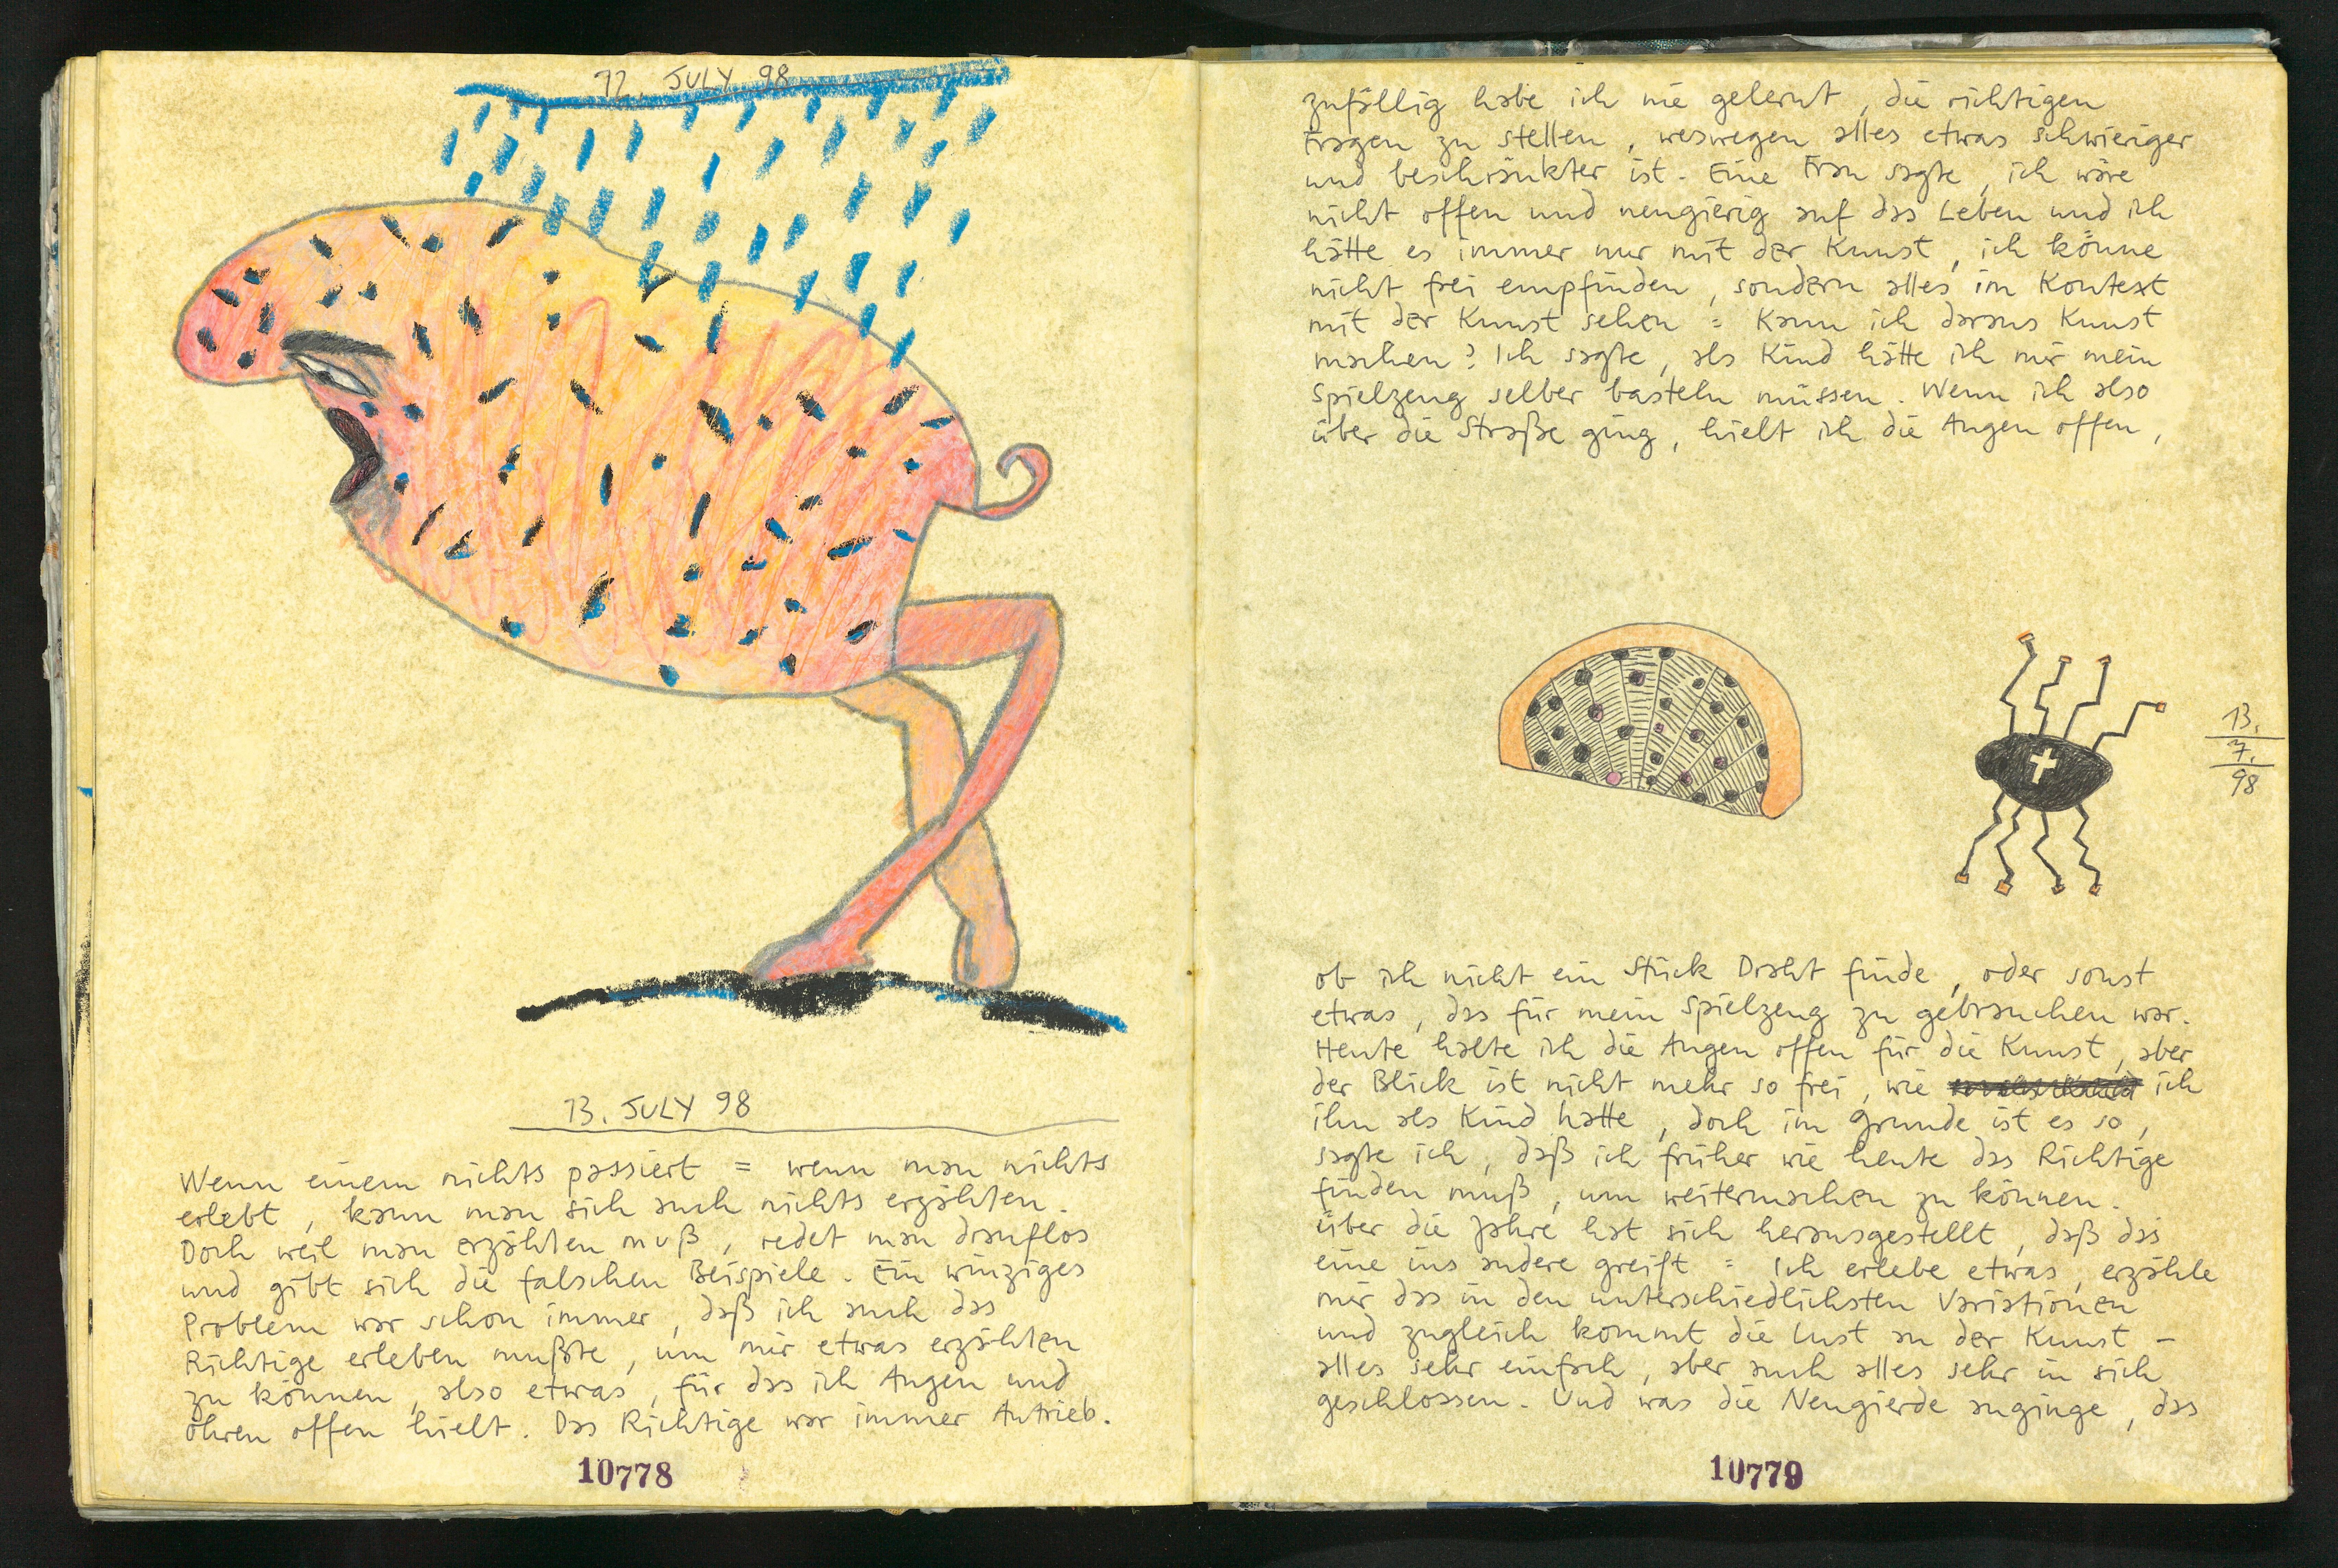 12. JULY 98
13. JULY 98
Wenn einem nichts passiert = wenn man nichts
erlebt, kann man sich auch nichts erzählen.
Doch weil man erzählen muß, redet man drauflos
und gibt sich die falschen Beispiele. Ein winziges
Problem war schon immer, daß ich auch das
Richtige erleben mußte, um mir etwas erzählen
zu können, also etwas, für das ich Augen und
Ohren offen hielt. Das Richtige war immer Antrieb.
10778
zufällig habe ich nie gelernt, die richtigen
Fragen zu stellen, weswegen alles etwas schwieriger
und beschränkter ist. Eine Frau sagte, ich wäre
nicht offen und neugierig auf das Leben und ich
hätte es immer nur mit der Kunst, ich könne
nicht frei empfinden, sondern alles im Kontext
mit der Kunst sehen = Kann ich daraus Kunst
machen? Ich sagte, als Kind hätte ich mir mein
Spielzeug selber basteln müssen. Wenn ich also
über die Straße ging, hielt ich die Augen offen,
13.
7.
98
ob ich nicht ein Stück Draht finde, oder sonst
etwas, das für mein Spielzeug zu gebrauchen war.
Heute halte ich die Augen offen für die Kunst, aber
der Blick ist nicht mehr so frei, wie ich
ihn als Kind hatte, doch im Grunde ist es so,
sagte ich, daß ich früher wie heute das Richtige
finden muß, um weitermachen zu können.
Über die Jahre hat sich herausgestellt, daß das
eine ins andere greift = Ich erlebe etwas, erzähle
mir das in den unterschiedlichsten Variationen
und zugleich kommt die Lust an der Kunst –
alles sehr einfach, aber auch alles sehr in sich
geschlossen. Und was die Neugierde anginge, das
10779